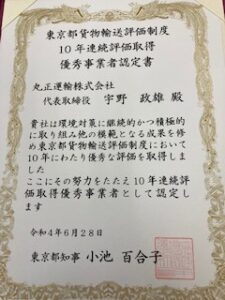 東京都貨物輸送評価制度
10年連続評価取得
優秀事業者認定書
丸正運輸株式会社
代表取締役 宇野 政雄 殿
貴社は環境対策に継続的かつ積極的
に取り組み他の模範となる成果を修
め東京都貨物輸送評価制度において
10年にわたり優秀な評価を取得しま
した
ここにその努力をたたえ10年連続評
価取得優秀事業者として認定し
ます
令和4年6月28日
東京都知事 小池 百合子